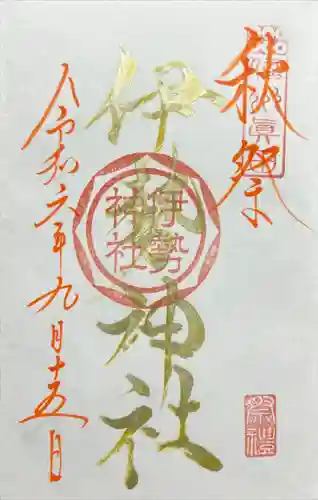 秋祭
伊勢神社
伊勢
神社
令和六年九月十五日
祭禮